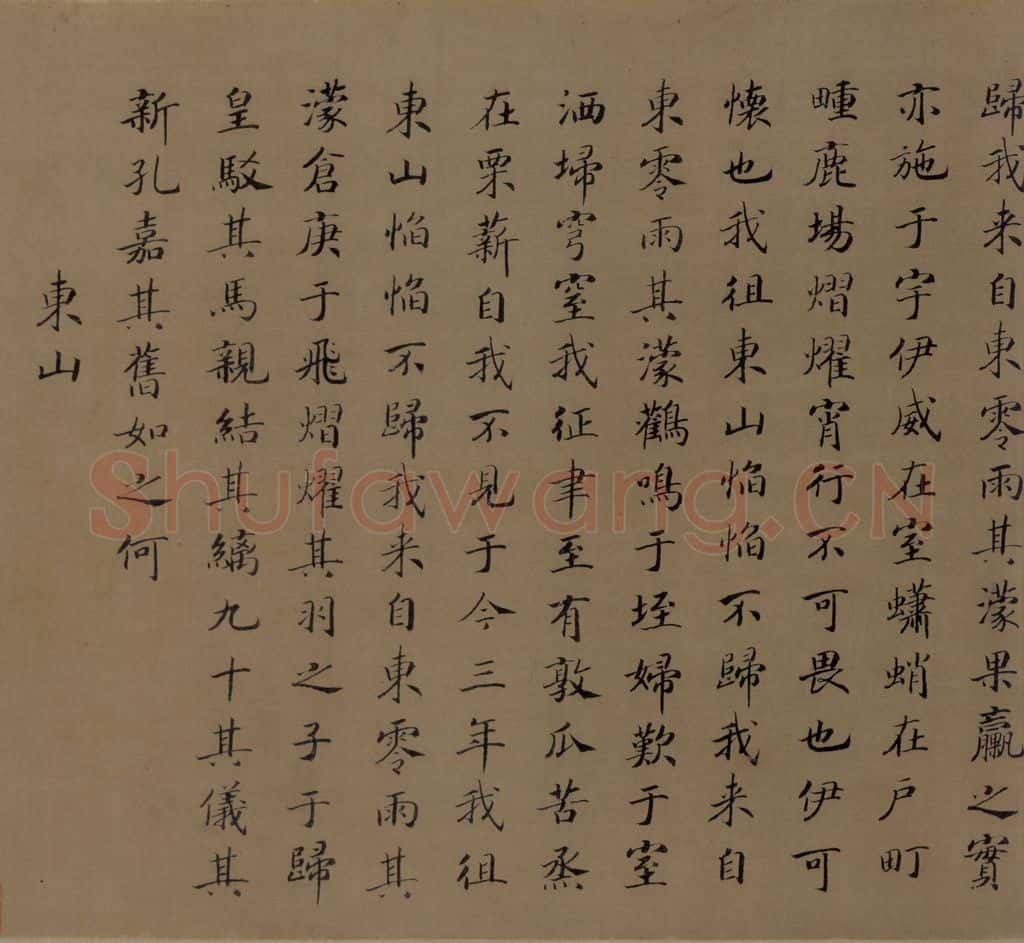 歸我来自東零雨其濛果臝之實
亦施于宇伊威在室蠨蛸在戶町
畽鹿場熠燿宵行不可畏也伊可
懐也我徂東山慆慆不歸我来自
東零雨其濛鸛鳴于垤婦歎于室
洒埽穹窒我征聿至有敦瓜苦烝
在栗薪自我不見于今三年我徂
東山慆慆不歸我来自東零雨其
濛倉庚于飛熠燿其羽之子于歸
皇駁其馬親結其縭九十其儀其
新孔嘉其舊如之何
東山
Shufawang.CN